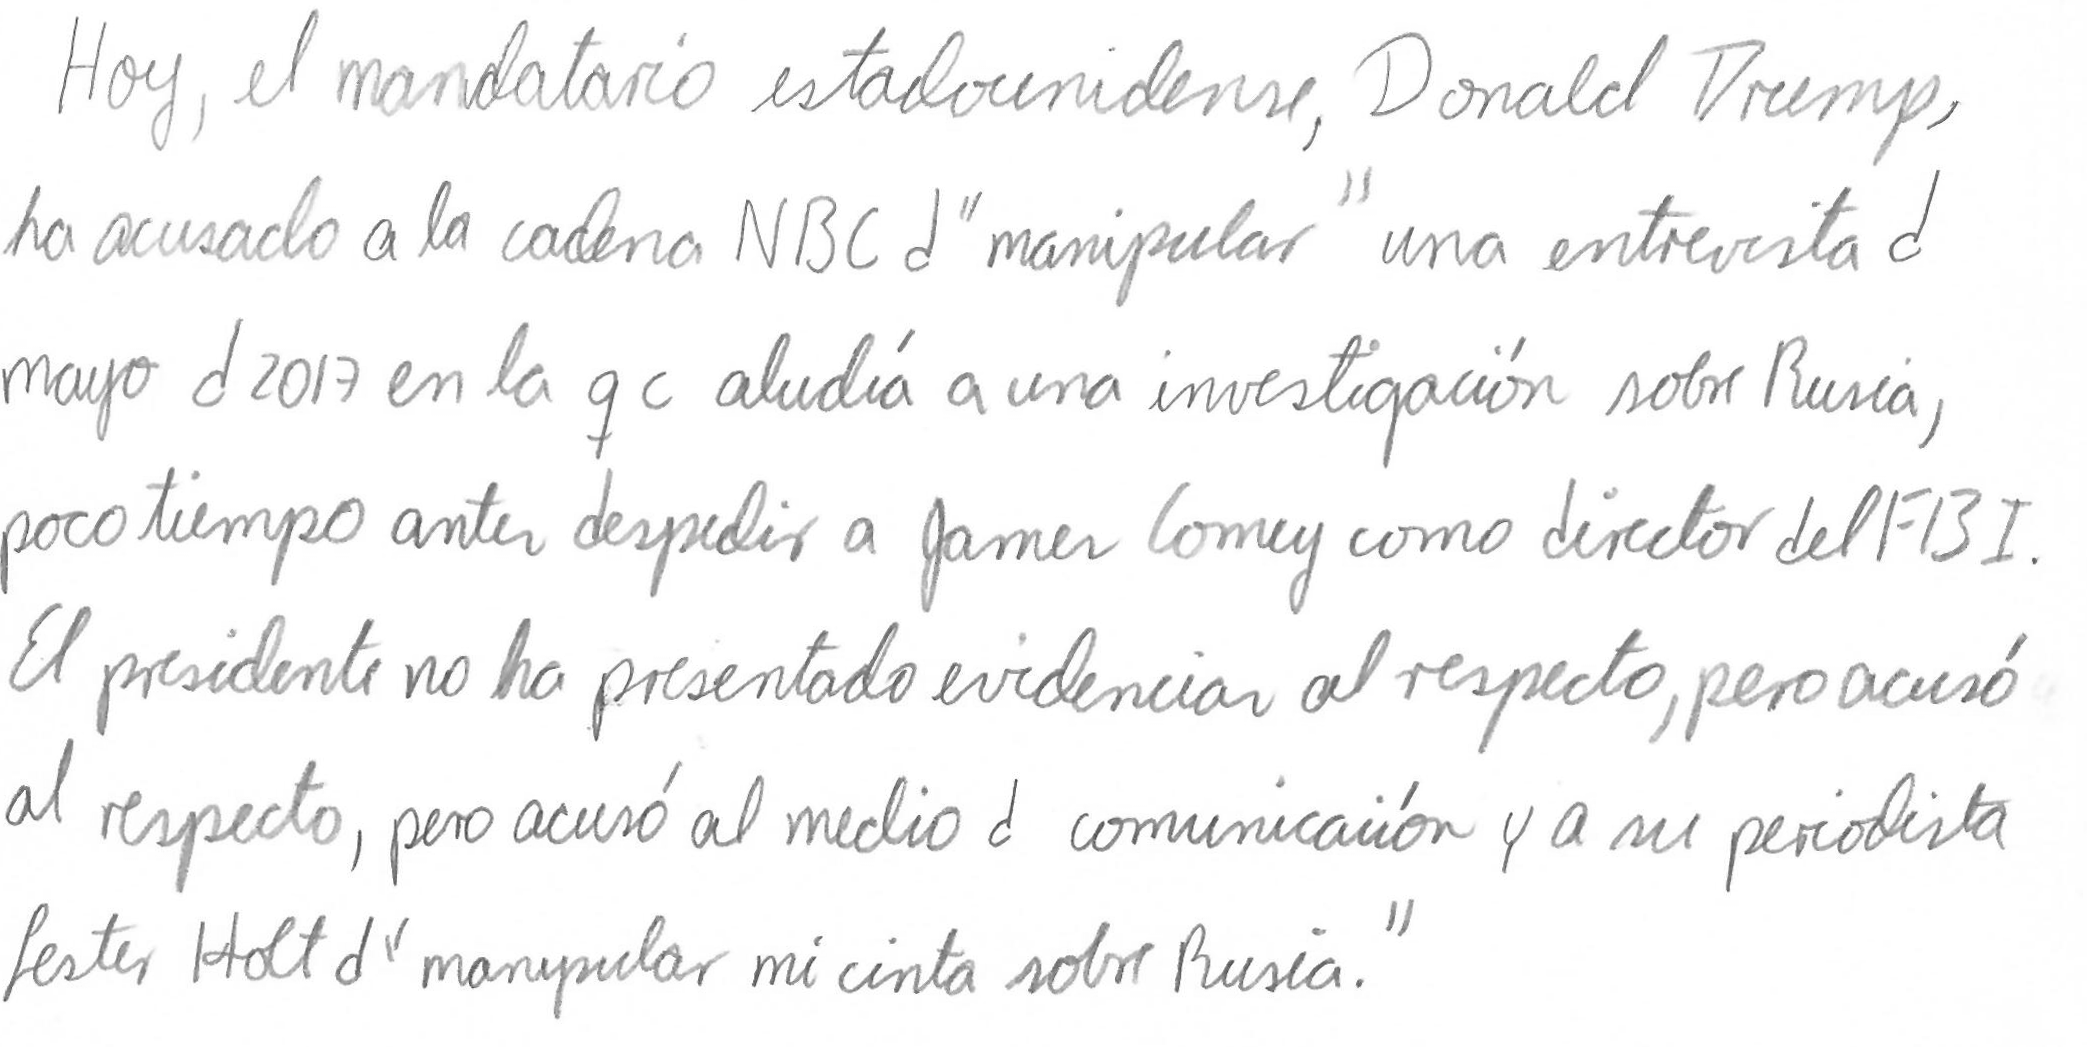 Hoy, el mandatario estadounidense, Donald Trump,
ha acusado a la cadena NBC d "manipular" una entrevista d
mayo d 2017 en la q c aludía a una investigación sobre Rusia,
poco tiempo antes despedir a James Comey como director del FBI.
El presidente no ha presentado evidencias al respecto, pero acusó
al respecto, pero acusó al medio d comunicación y a su periodista
Lester Holt d "manypular mi cinta sobre Rusia."